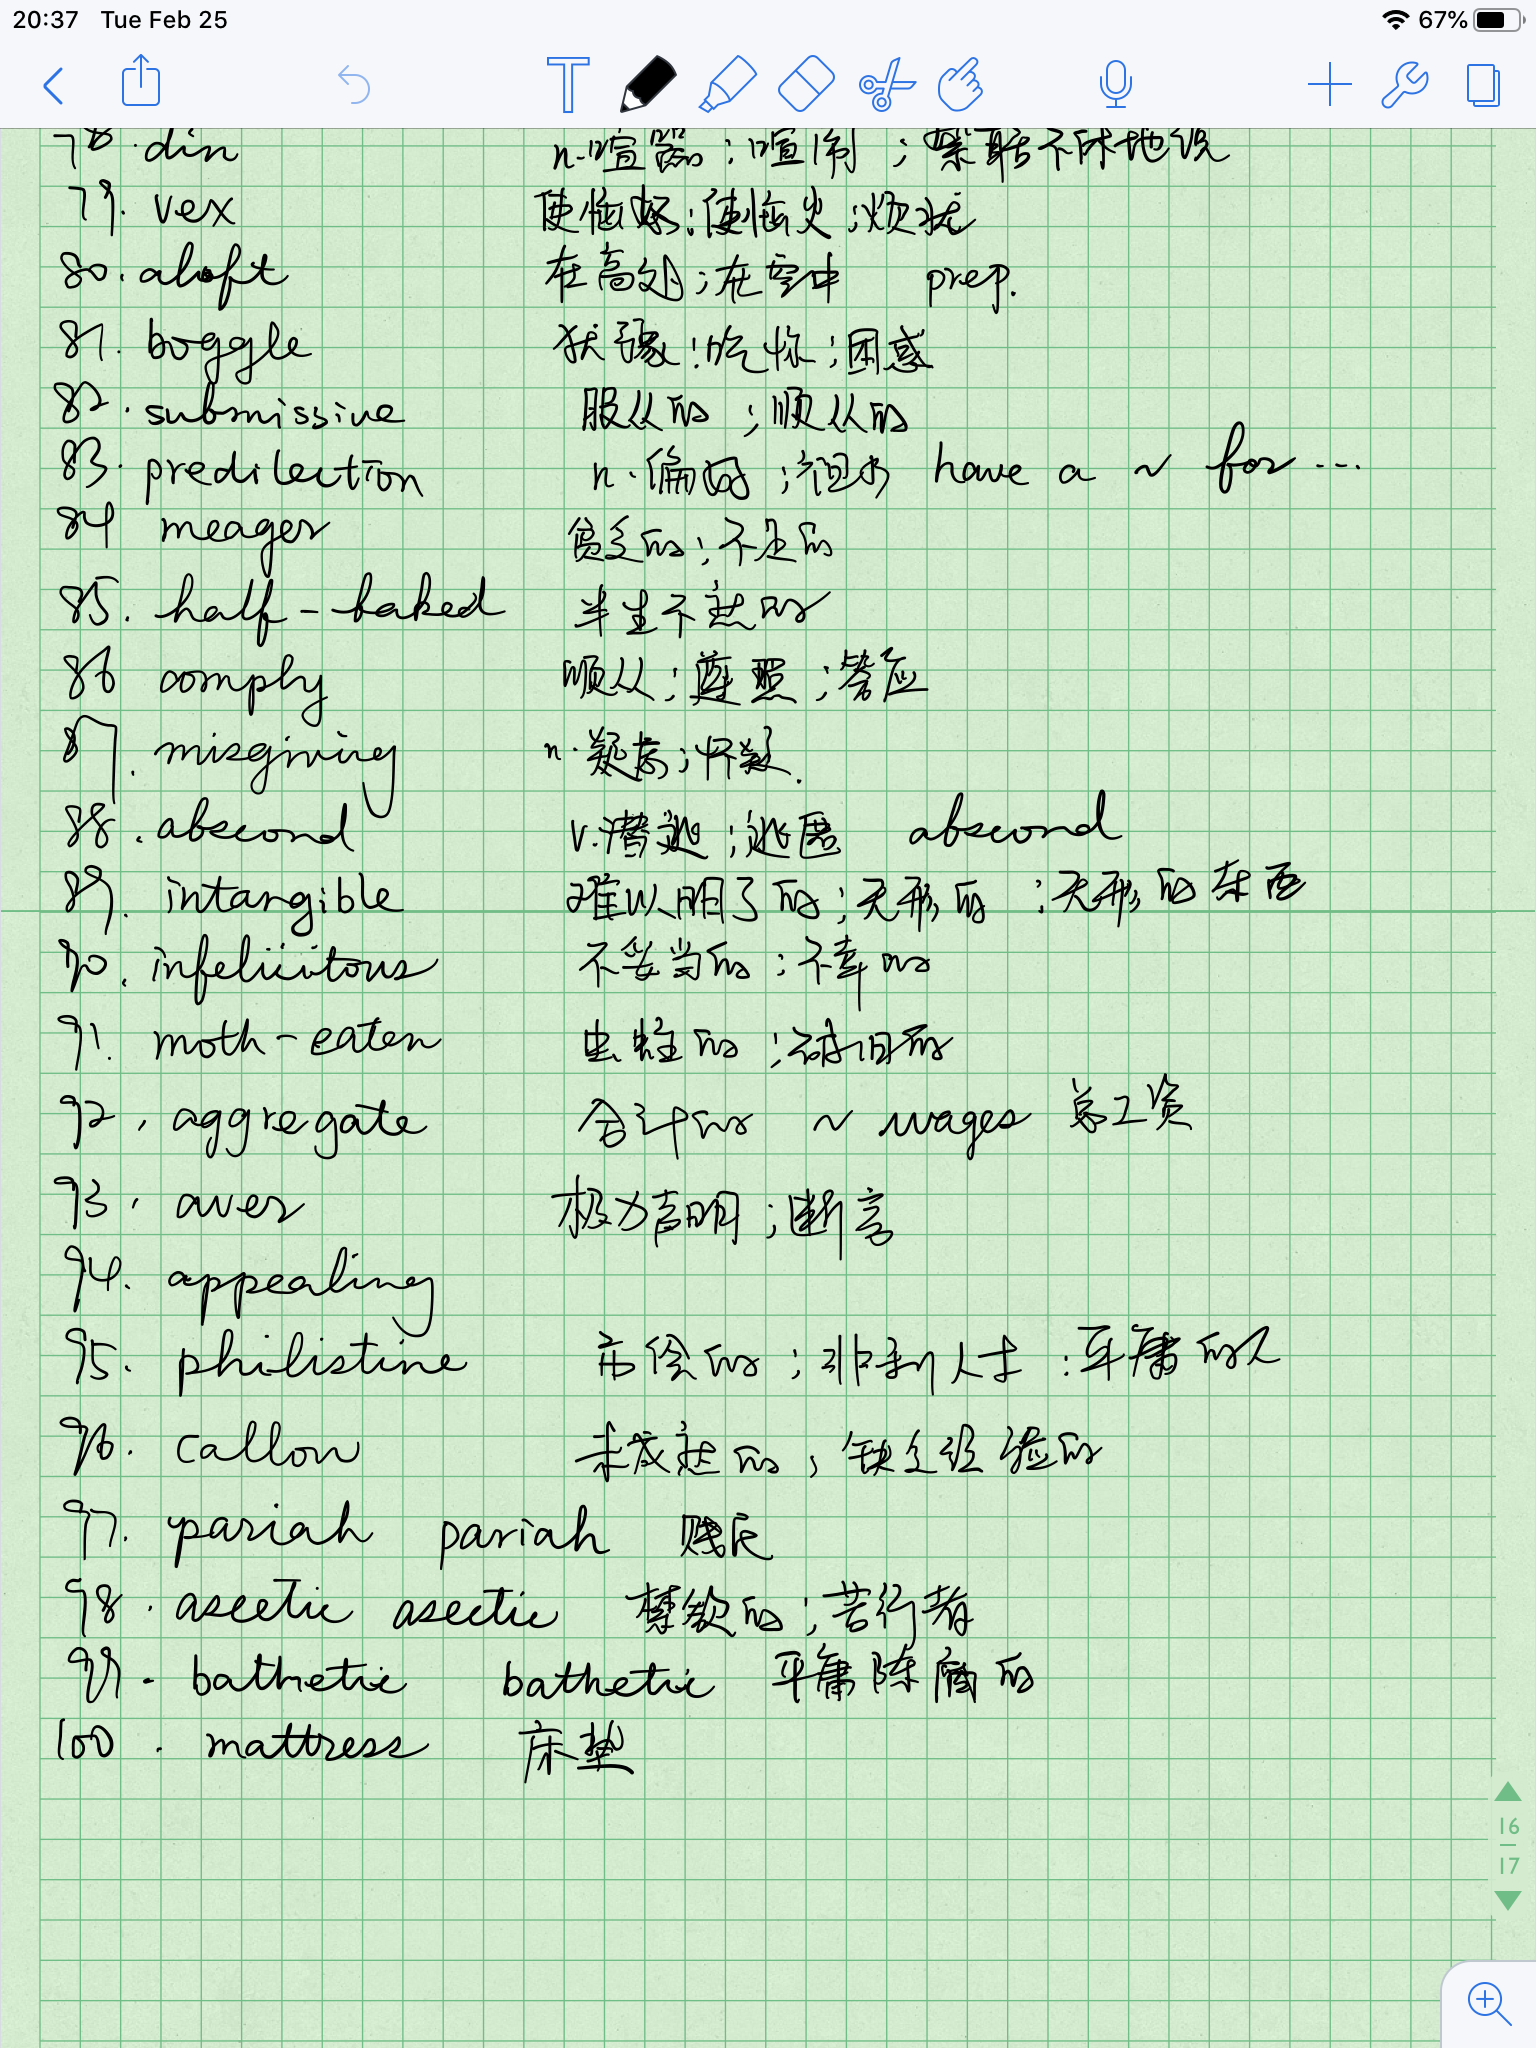 20:37 Tue Feb 25 67%
78. din n. 喧嚣；喧闹；絮聒不休地说
79. vex 使恼怒；使恼火；烦扰
80. aloft 在高处；在空中 prep.
81. boggle 犹豫；吃惊；困惑
82. submissive 服从的；顺从的
83. predilection n. 偏好；袒护 have a ~ for ...
84 meager 贫乏的；不足的
85. half-baked 半生不熟的
86 comply 顺从；遵照；答应
87. misgiving n. 疑虑；怀疑.
88. abscond v. 潜逃；逃匿 abscond
89. intangible 难以明了的；无形的；无形的东西
90. infelicitous 不妥当的；不幸的
91. moth-eaten 虫蛀的；破旧的
92. aggregate 合计的 ~ wages 总工资
93. aver 极力声明；断言
94. appealing
95. philistine 市侩的；非利人士；平庸的人
96. callon 未成熟的；缺乏经验的
97. pariah pariah 贱民
98. ascetic ascetic 禁欲的；苦行者
99. bathetic bathetic 平庸陈腐的
100. mattress 床垫
16
17